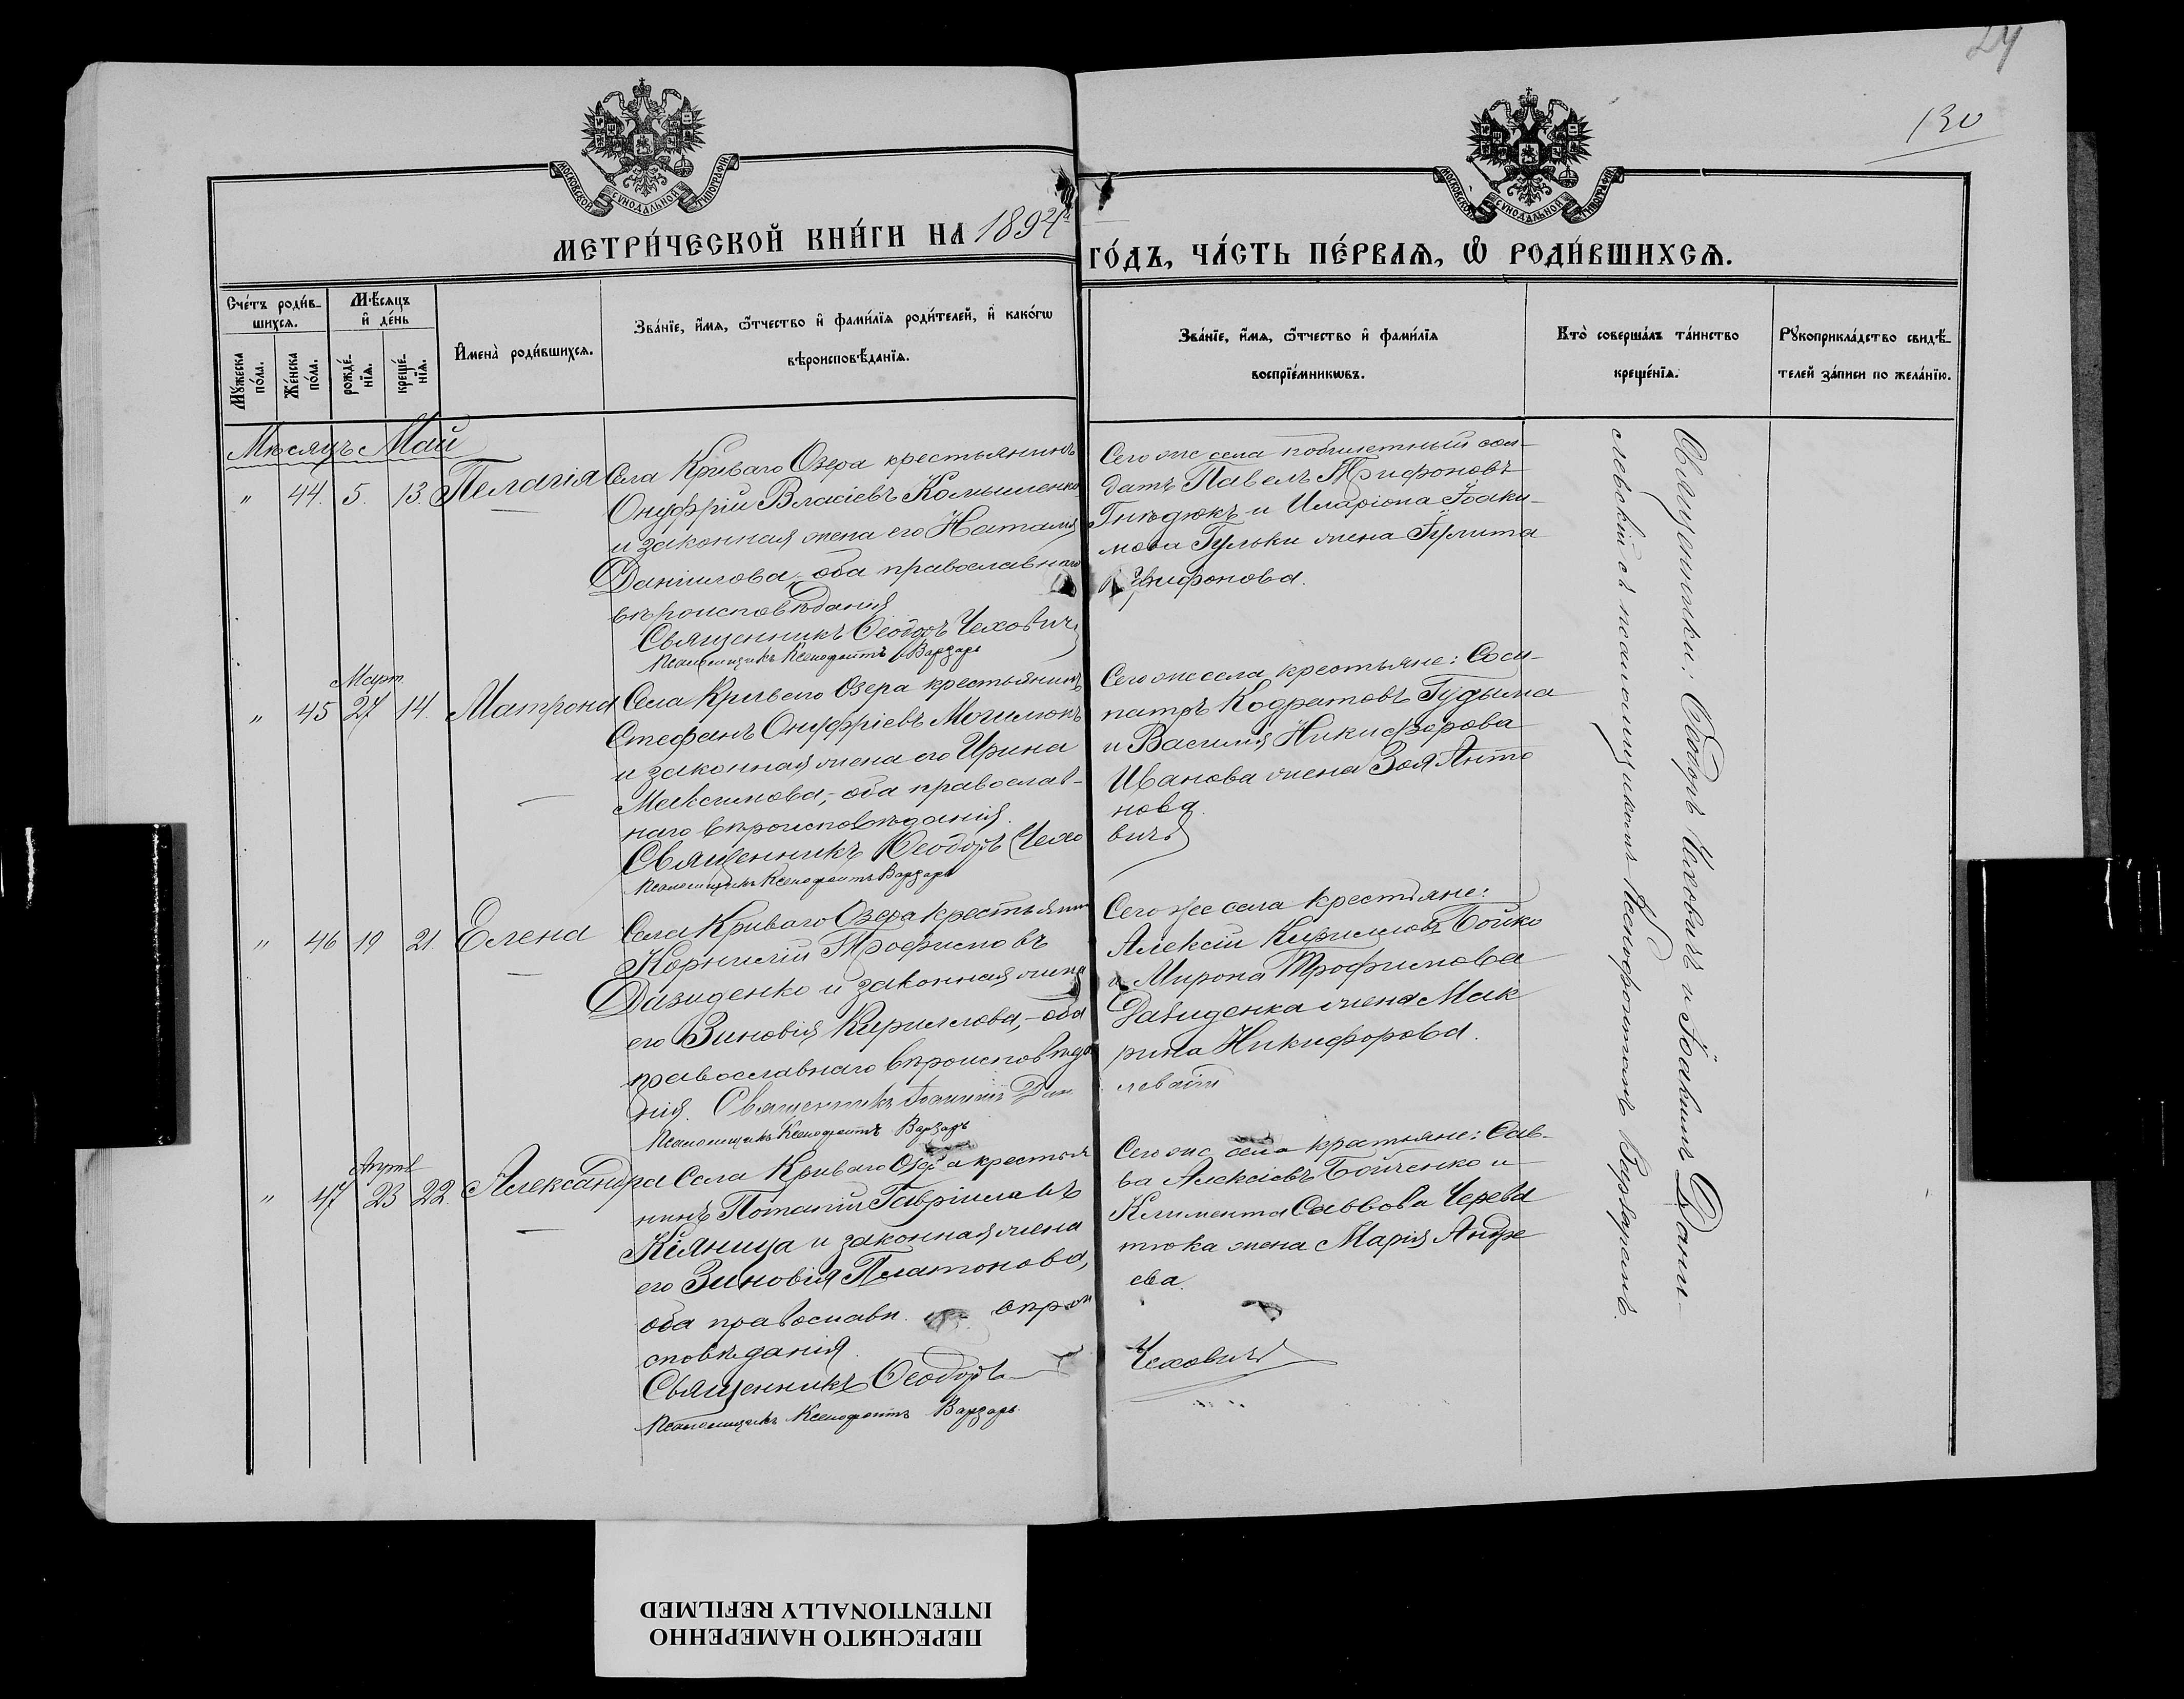 24
130
МОСКОВСКОЙ СУНОДАЛЬНОЙ ТИПОГРАФІИ
МОСКОВСКОЙ СУНОДАЛЬНОЙ ТИПОГРАФІИ
МЕТРИ́ЧЕСКОЙ КНИ́ГИ НА 1894
ГО́ДЪ, ЧА́СТЬ ПЕ́РВАѦ, Ѡ҆ РОДИ́ВШИХСѦ.
Сче́тъ роди́в-
шихсѧ.
Мꙋ́жеска по́ла.
Же́нска по́ла.
Мѣ́сѧцъ
и҆ де́нь
рожде́-
нїѧ.
креще́-
нїѧ.
И҆мена̀ роди́вшихсѧ.
Зва́нїе, и҆́мѧ, ѻ҆́тчество и҆ фами́лїѧ роди́телей, и҆ како́гѡ
вѣроисповѣ́данїѧ.
Зва́нїе, и҆́мѧ, ѻ҆́тчество и҆ фами́лїѧ
воспрїе́мникѡвъ.
Кто̀ соверша́лъ та́инство
креще́нїѧ.
Рꙋкоприкла́дство свидѣ́-
телей за́писи по жела́нїю.
Мѣсяцъ Май
" 44. 5. 13. Пелагія
Села Криваго Озера крестьянинъ
Онуфрій Власіевъ Камышенко
и законная жена его Наталія
Даніилова, оба православнаго
вѣроисповѣданія
Священникъ Ѳеодоръ Чеховичъ
Псаломщикъ Ксенофонтъ Варзарь
Сего же села побилетный сол-
датъ Павелъ Трифоновъ
Гнѣдюкъ и Иларіона Іоаки-
мова Гульки жена Іулита
Трифонова.
" 45 Март. 27 14. Матрона
Села Криваго Озера крестьянинъ
Стефанъ Онуфріевъ Могилюкъ
и законная жена его Ирина
Максимова, оба православ-
наго вѣроисповѣданія.
Священникъ Ѳеодоръ Чехо
вичъ
Псаломщикъ Ксенофонтъ Варзарь
Сего же села крестьяне: Соси-
патръ Кодратовъ Гудыма
и Василія Никифорова
Иванова жена Зоя Анто
нова.
" 46 19 21. Елена
Села Криваго Озера крестьянин
Корнилій Трофимовъ
Давиденко и законная жена
его Зиновія Кириллова, - оба
православнаго вѣроисповѣда
нія. Священникъ Іоакимъ Дани
левскій
Псаломщикъ Ксенофонтъ Варзарь
Сего же села крестьяне:
Алексій Кирилловъ Бойко
и Мирона Трофимова
Давиденка жена Мак
рина Никифорова.
" 47 Апрѣл 23 22. Александра
Села Криваго Озера крестья
нинъ Потапій Гавріиловъ
Кіяница и законная жена
его Зиновія Платонова,
оба православн. вѣрои
сповѣданія.
Священникъ Ѳеодоръ
Чеховичъ
Псаломщикъ Ксенофонтъ Варзарь
Сего же села крестьяне: Сав-
ва Алексіевъ Бойченко и
Климента Саввова Черева
тюка жена Марія Андре
ева.
Священники: Ѳеодоръ Чеховичъ и Іоакимъ Дани-
левскій съ псаломщикомъ Ксенофонтомъ Варзаремъ.
ПЕРЕСНЯТО НАМЕРЕННО
INTENTIONALLY REFILMED